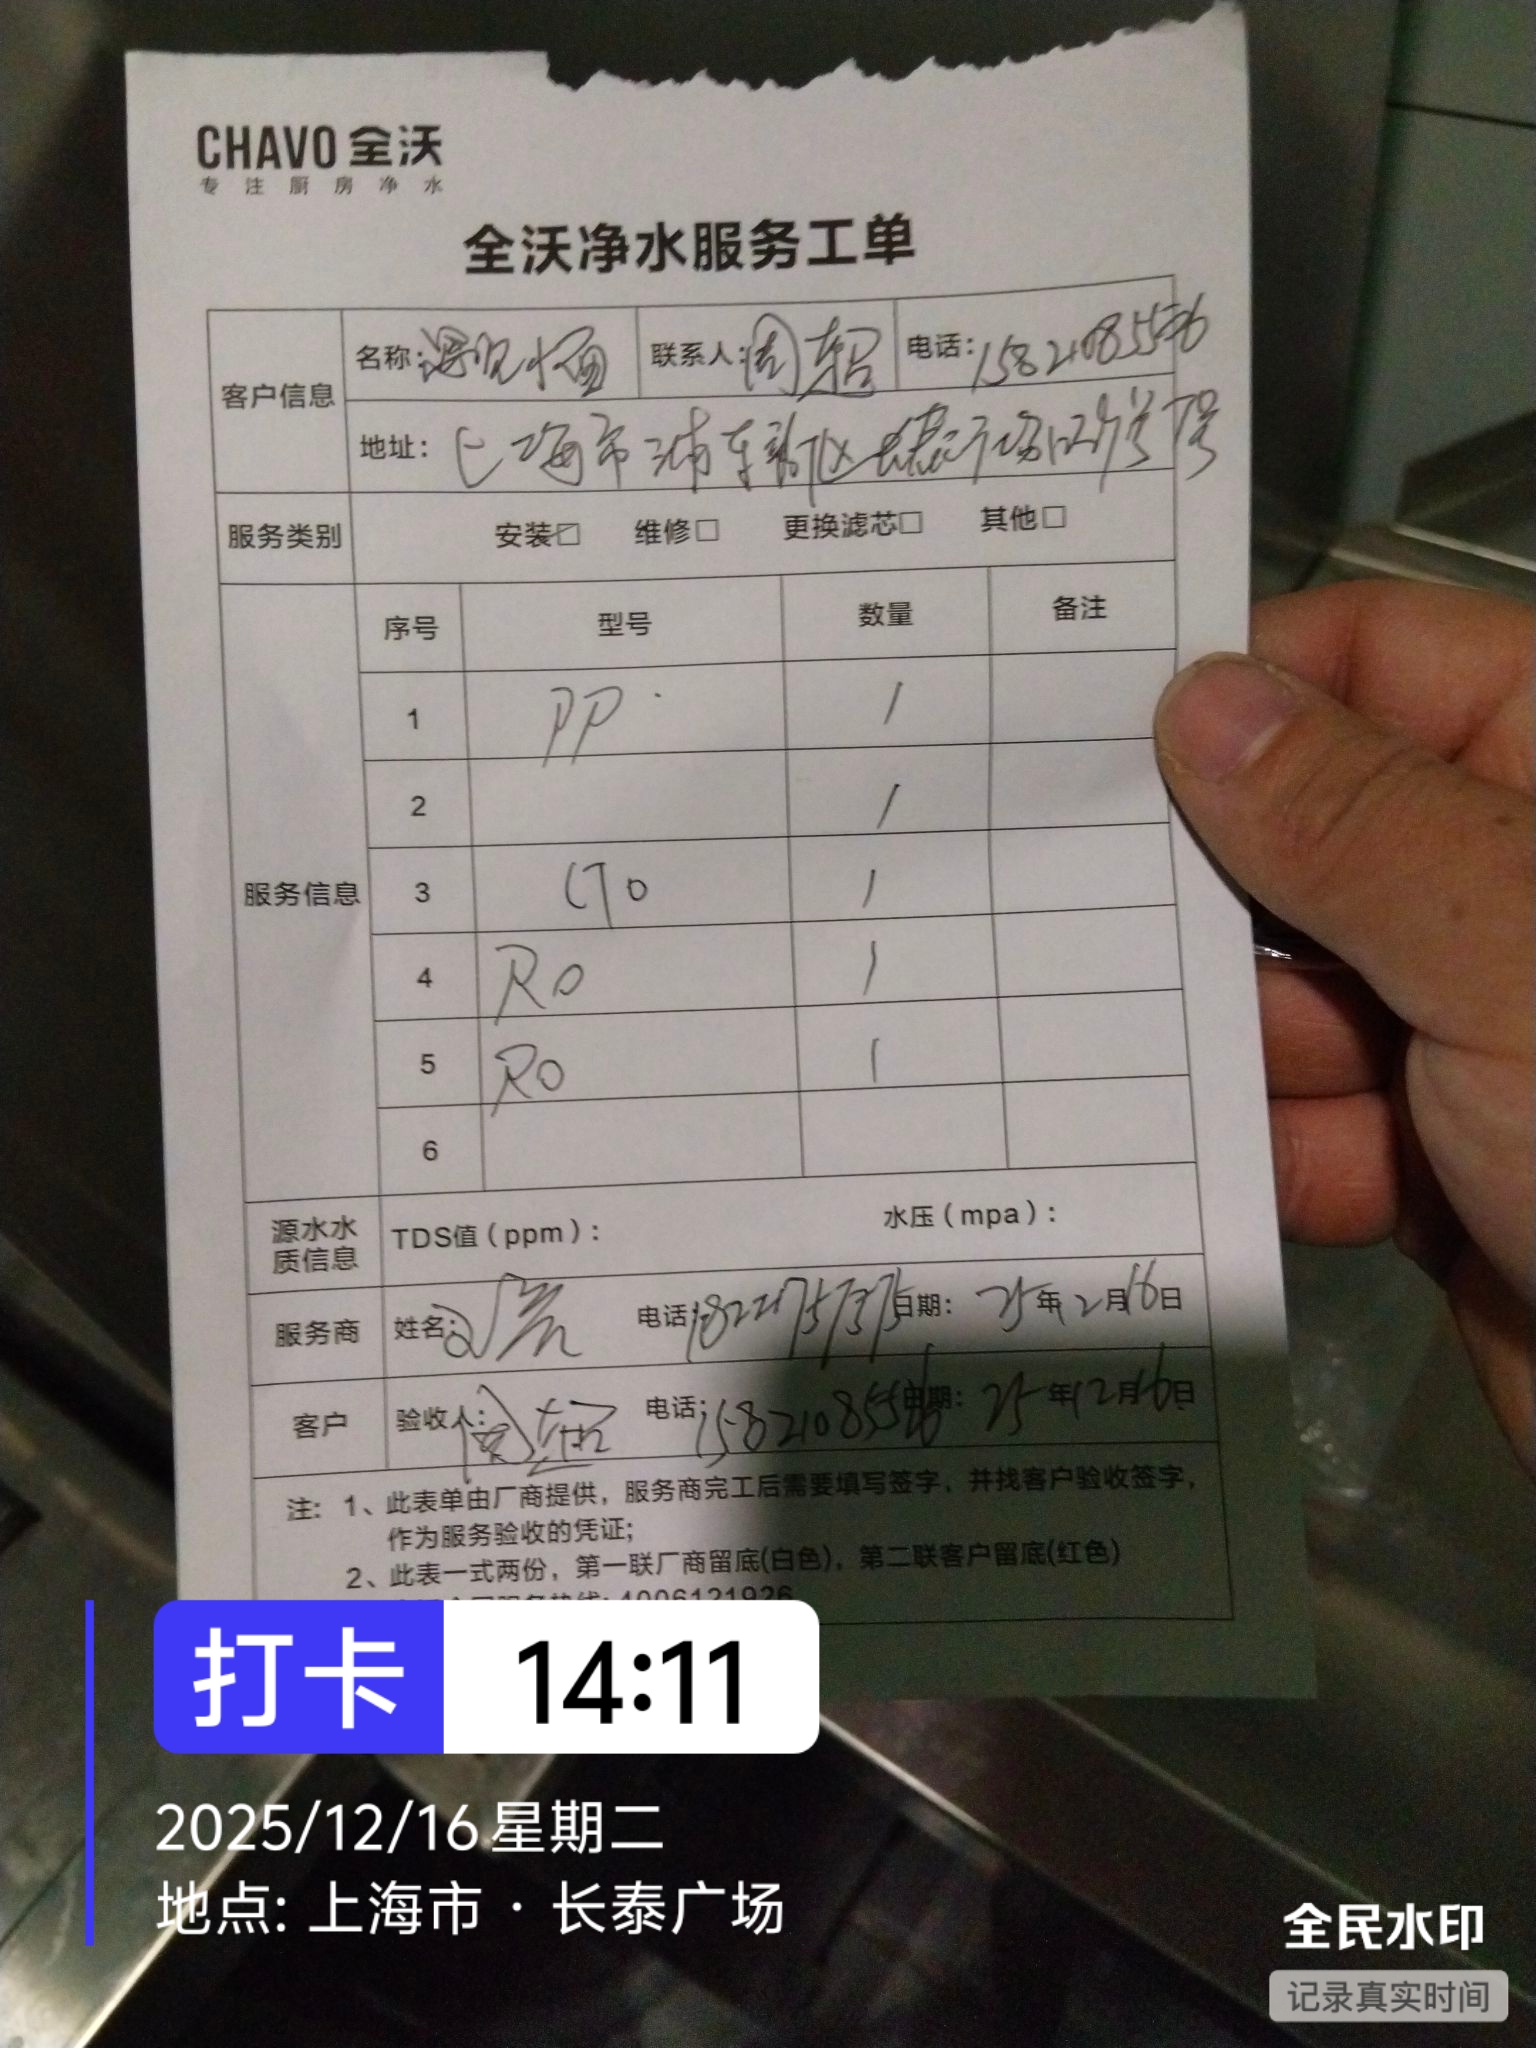 CHAVO 全沃
专注厨房净水
全沃净水服务工单
客户信息 名称：遇见小面 联系人：周超 电话：15821085576
地址：上海市浦东新区长泰广场
服务类别 安装☑ 维修□ 更换滤芯□ 其他□
服务信息 序号 型号 数量 备注
1 PP 1
2 1
3 CTO 1
4 RO 1
5 RO 1
6
源水水质信息 TDS值（ppm）： 水压（mpa）：
服务商 姓名： 电话： 日期：25年12月16日
客户 验收人：周超 电话：15821085576 日期：25年12月16日
注：1、此表单由厂商提供，服务商完工后需要填写签字，并找客户验收签字，
作为服务验收的凭证；
2、此表一式两份，第一联厂商留底(白色)，第二联客户留底(红色)
4006121926
打卡 14:11
2025/12/16 星期二
地点: 上海市·长泰广场
全民水印
记录真实时间